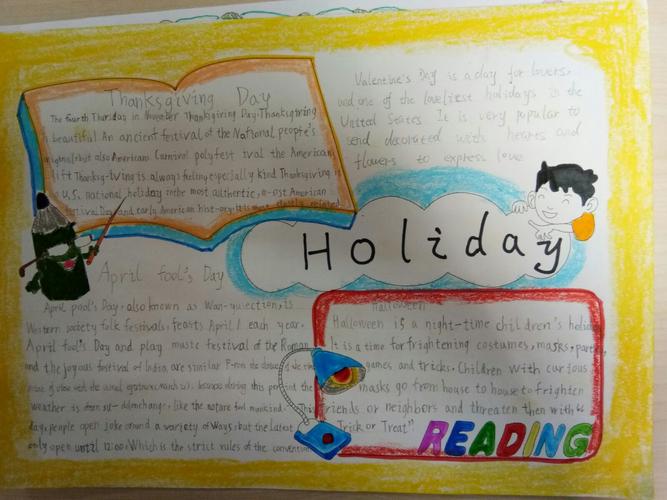 Thanksgiving Day
The fourth Thursday in November Thanksgiving Day. Thanksgiving
is beautiful An ancient festival of the National people's
original but also American Carnival polyfest ival the American
lift Thanksg-iving is always feeling especially kind Thanksgiving is
a U.S. national holiday in the most authentic, m-ost American
Festival Day and early American hist-ory. It is most closely related
Valentine's Day is a day for lovers,
and one of the loveliest holidays in the
United States. It is very popular to
send decorated with hearts and
flowers to express love
Holiday
April fool's Day
April pool's Day, also known as Wan-
Western society folk festivals, feasts April 1 each year.
April Fool's Day and play music festival of the Roman
and the joyous festival of India are similar
because during this period the
weather is often su-ddenchange, like the nature fool mankind. This
day, people open joke around a variety of ways, but the latest
only open until 12:00. Which is the strict rules of the convention
Halloween
Halloween is a night-time children's holiday
It is a time for frightening costumes, masks, party,
games and tricks. Children with curious
masks go from house to house to frighten
friends or neighbors and threaten then with "
Trick or Treat"
READING